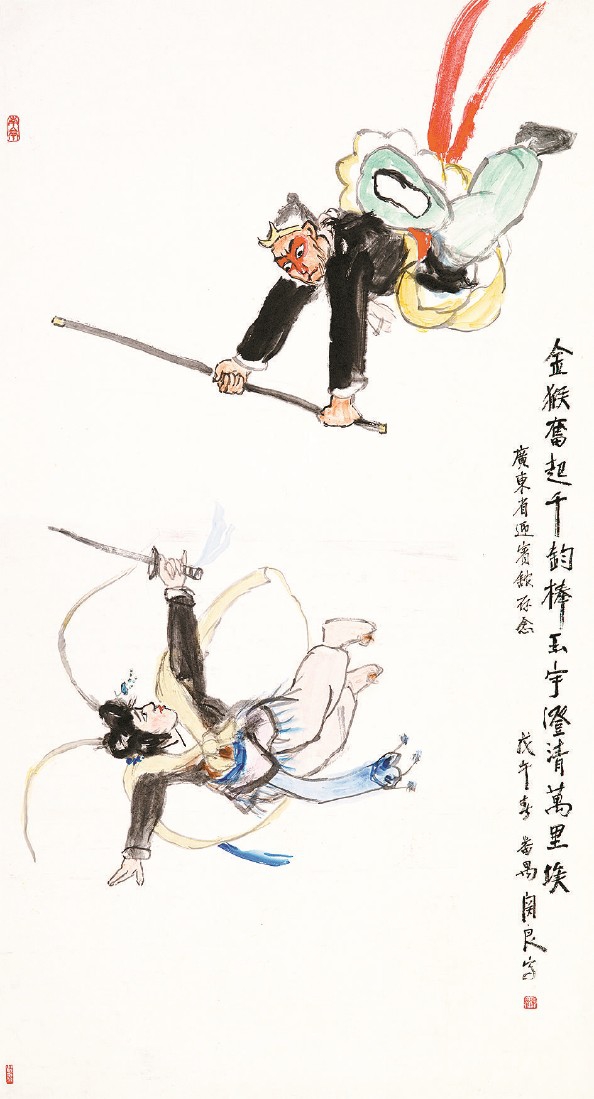 金猴奮起千鈞棒玉宇澄清萬里埃
廣東省迎賓館存念
戊午春 番禺 關良寫